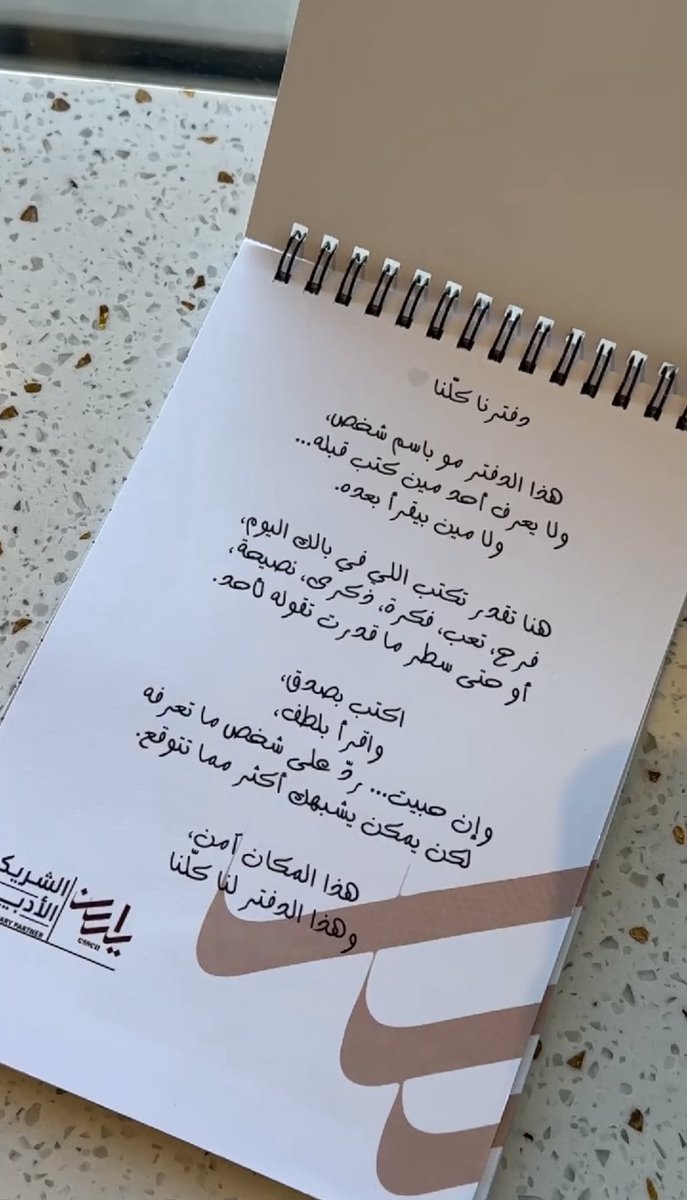 دفترنا كلّنا
هذا الدفتر مو باسم شخص،
ولا يعرف أحد مين كتب قبله...
ولا مين بيقرأ بعده.
هنا تقدر تكتب اللي في بالك اليوم،
فرح، تعب، فكرة، ذكرى، نصيحة،
أو حتى سطر ما قدرت تقوله لأحد.
اكتب بصدق،
واقرأ بلطف،
وإن حبيت... ردّ على شخص ما تعرفه
لكن يمكن يشبهك أكثر مما تتوقع.
هذا المكان آمن،
وهذا الدفتر لنا كلّنا
الشريك
الأدبي
PARTNER